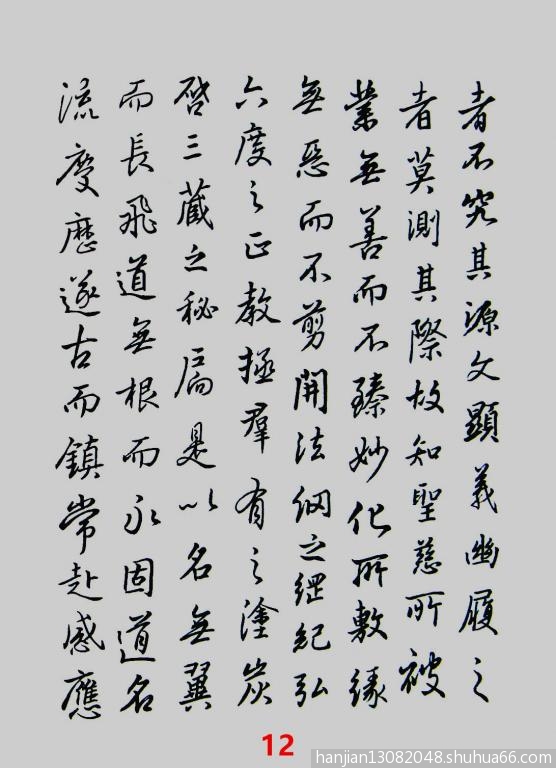 者不究其源文顯義幽履之
者莫測其際故知聖慈所被
業無善而不臻妙化所敷緣
無惡而不剪開法網之綱紀弘
六度之正教拯羣有之塗炭
啓三藏之秘扃是以名無翼
而長飛道無根而永固道名
流慶歷遂古而鎮常赴感應
12
hanjian13082048.shuhua66.com